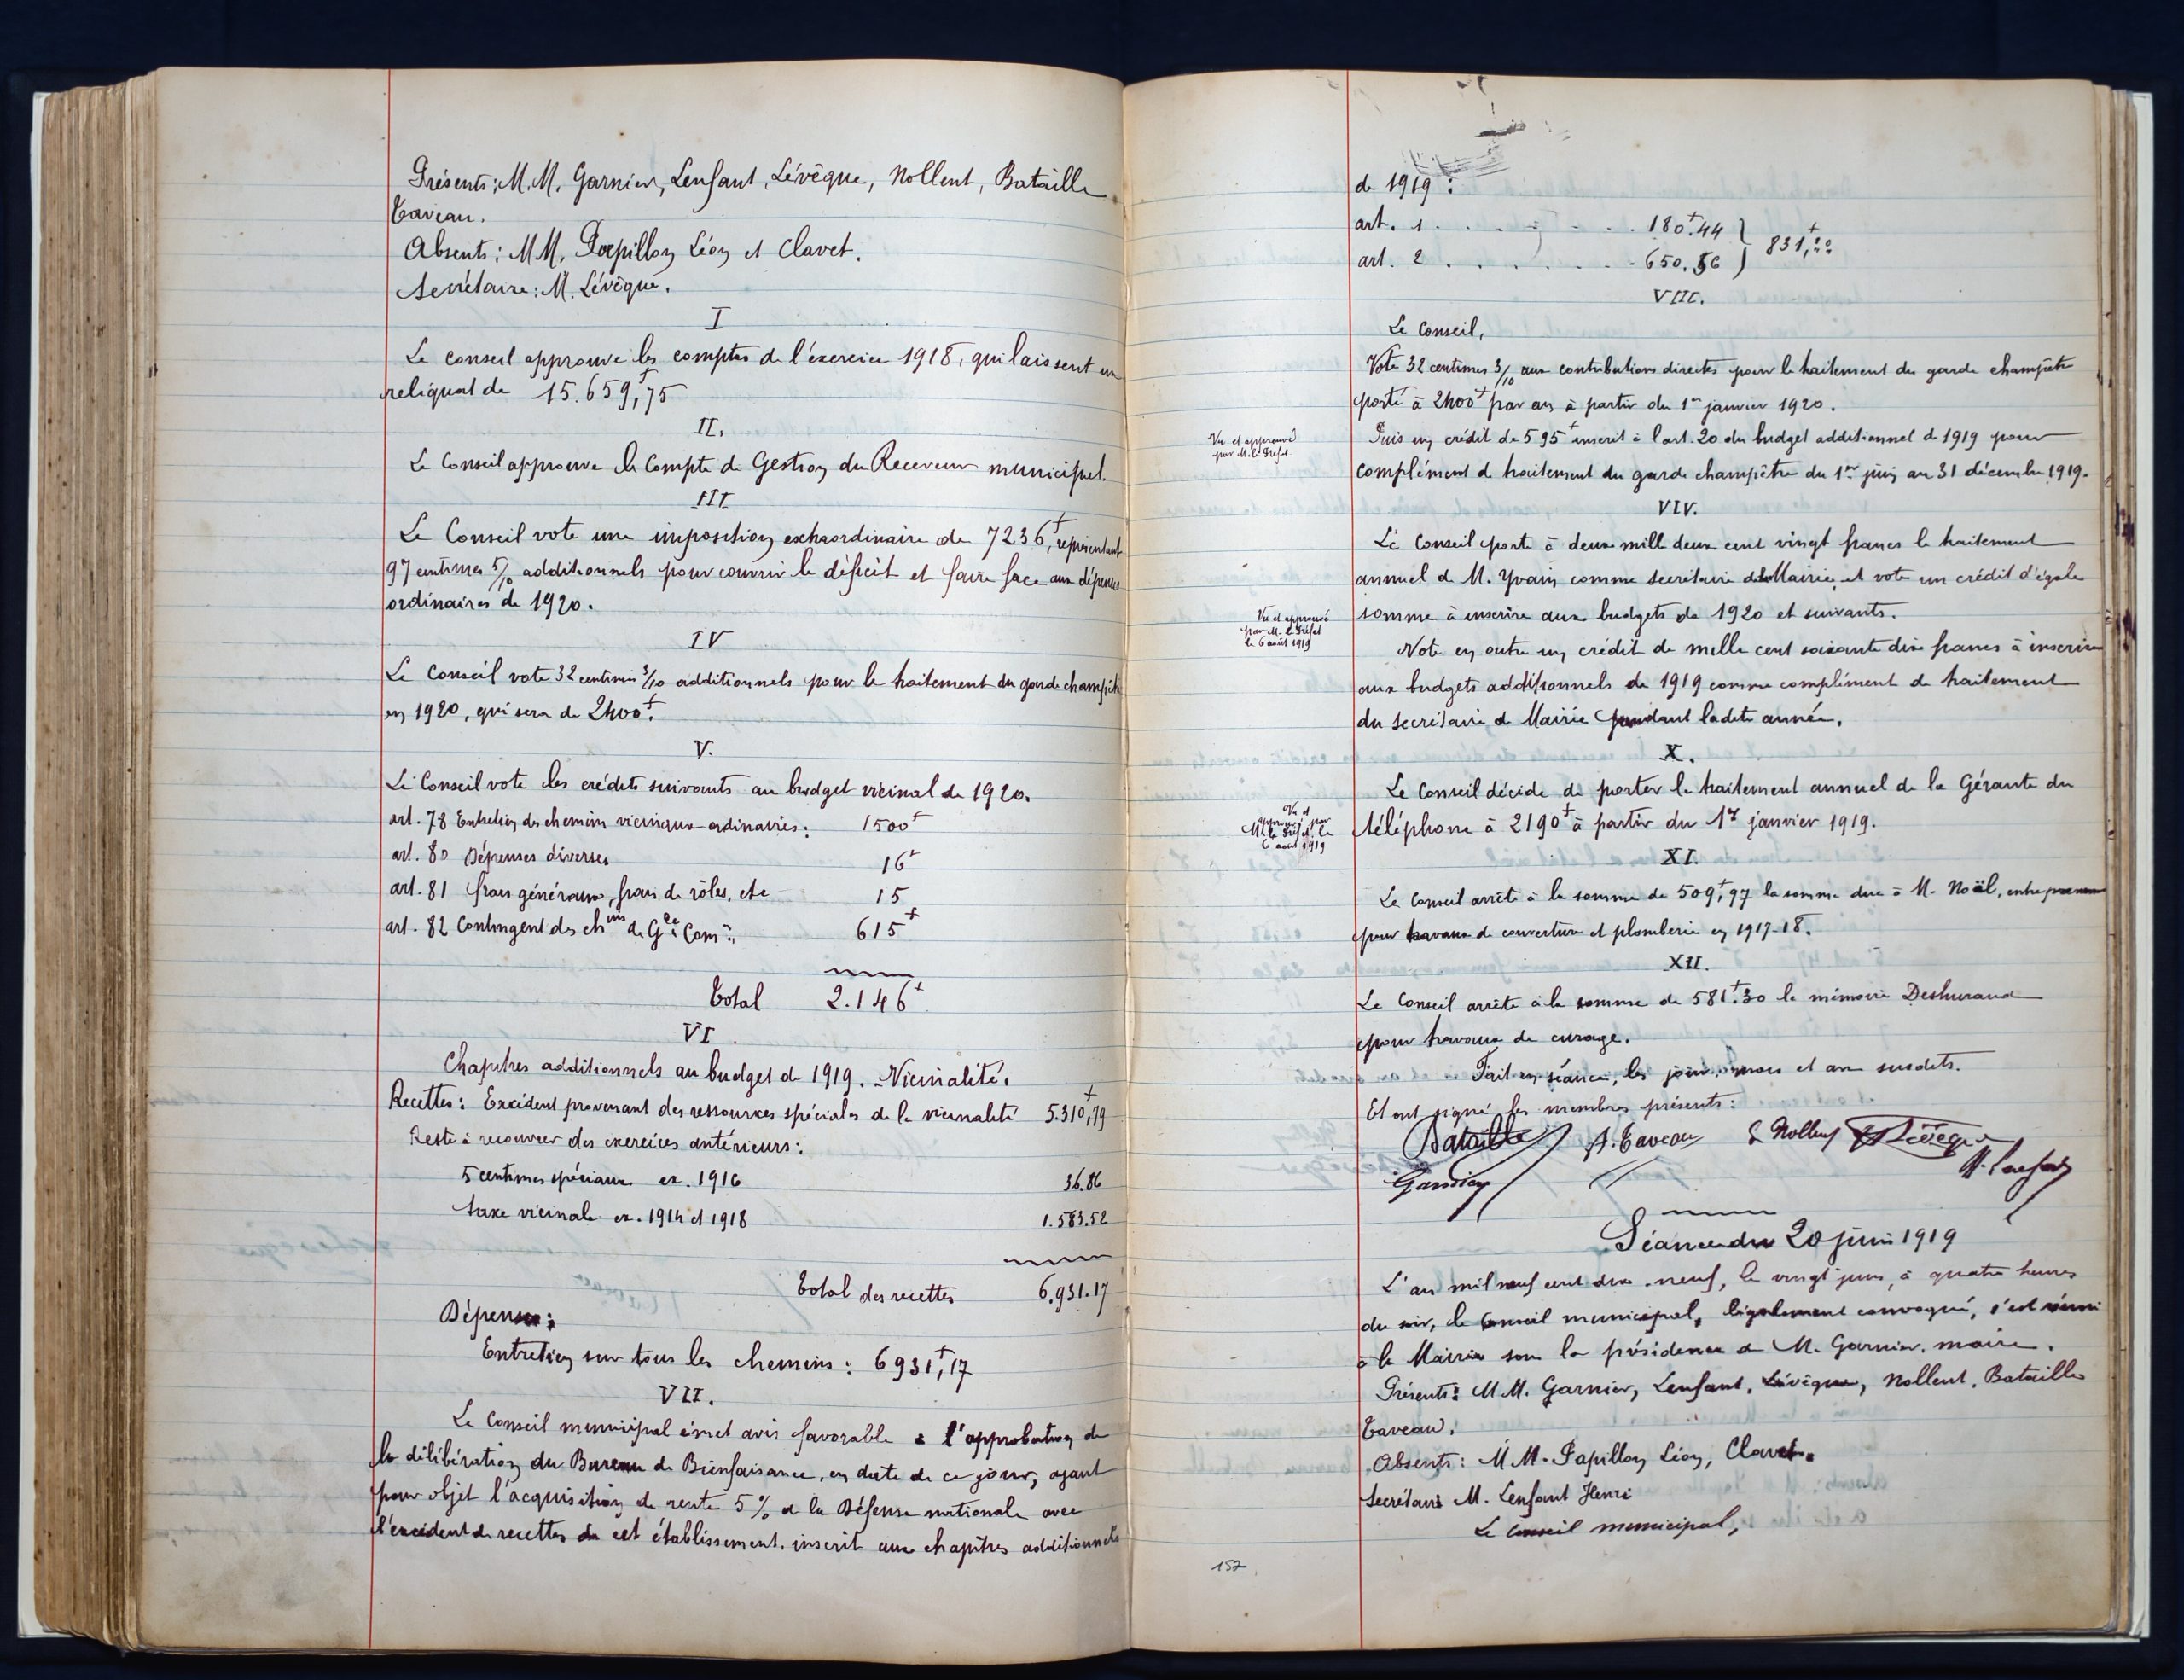 Présents: M.M. Garnier, Lenfant, Lévêque, Nollent, Bataille
Taveau.
Absents: MM. Papillon Léon et Clavet.
Secrétaire: M. Lévêque.
I
Le conseil approuve les comptes de l'exercice 1918, qui laissent un
reliquat de 15.659f,75
II.
Le Conseil approuve le Compte de Gestion du Receveur municipal.
III
Le Conseil vote une imposition extraordinaire de 7236f, représentant
97 centimes 5/10 additionnels pour couvrir le déficit et faire face aux dépenses
ordinaires de 1920.
IV
Le Conseil vote 32 centimes 3/10 additionnels pour le traitement du garde champêtre
en 1920, qui sera de 2400f.
V.
Le Conseil vote les crédits suivants au budget vicinal de 1920.
art. 78 Entretien des chemins vicinaux ordinaires: 1500f
art. 80 Dépenses diverses 16f
art. 81 frais généraux, frais de rôles, etc 15
art. 82 Contingent des chins de Gde Com:on 615f
Total 2.146f
VI
Chapitres additionnels au budget de 1919. Vicinalité.
Recettes: Excédent provenant des ressources spéciales de la vicinalité 5.310f,79
Reste à recouvrer des exercices antérieurs:
5 centimes spéciaux ex. 1916 36.86
taxe vicinale ex. 1914 et 1918 1.583.52
Total des recettes 6.931.17
Dépenses:
Entretien sur tous les chemins: 6931f,17
VII.
Le Conseil municipal émet avis favorable à l'approbation de
la délibération du Bureau de Bienfaisance, en date de ce jour, ayant
pour objet l'acquisition de rente 5% de la Défense nationale avec
l'excédent de recettes de cet établissement, inscrit aux chapitres additionnels
de 1919:
art. 1 . . . . . . . 180f.44
art. 2 . . . . . . . 650.56 } 831f,00
VIII.
Le Conseil,
Vote 32 centimes 3/10 aux contributions directes pour le traitement du garde champêtre
porté à 2400f par an à partir du 1er janvier 1920.
Vu et approuvé
par M. le Préfet
Puis un crédit de 595f inscrit à l'art. 20 du budget additionnel de 1919 pour
complément de traitement du garde champêtre du 1er juin au 31 décembre 1919.
VIV.
Le Conseil porte à deux mille deux cent vingt francs le traitement
annuel de M. Yvain comme secrétaire de la Mairie, et vote un crédit d'égale
somme à inscrire aux budgets de 1920 et suivants.
Vu et approuvé
par M. le Préfet
le 6 août 1919
Vote en outre un crédit de mille cent soixante dix francs à inscrire
aux budgets additionnels de 1919 comme complément de traitement
du secrétaire de Mairie pendant ladite année.
X.
Le Conseil décide de porter le traitement annuel de la Gérante du
téléphone à 2190f à partir du 1er janvier 1919.
Vu et
approuvé par
M. le Préfet le
6 août 1919
XI.
Le Conseil arrête à la somme de 509f,97 la somme due à M. Noël, entrepreneur
pour travaux de couverture et plomberie en 1917-18.
XII.
Le Conseil arrête à la somme de 581f.30 le mémoire
pour travaux de curage.
Fait en séance, les jour, mois et an susdits.
Et ont signé les membres présents:
Bataille A. Taveau Nollent Lévêque
Garnier H. Lenfant
Séance du 20 juin 1919
L'an mil neuf cent dix-neuf, le vingt juin, à quatre heures
du soir, le Conseil municipal, légalement convoqué, s'est réuni
à la Mairie sous la présidence de M. Garnier, maire.
Présents: M.M. Garnier, Lenfant, Lévêque, Nollent, Bataille
Taveau.
Absents: M.M. Papillon Léon, Clavet.
Secrétaire M. Lenfant Henri
Le Conseil municipal,
157